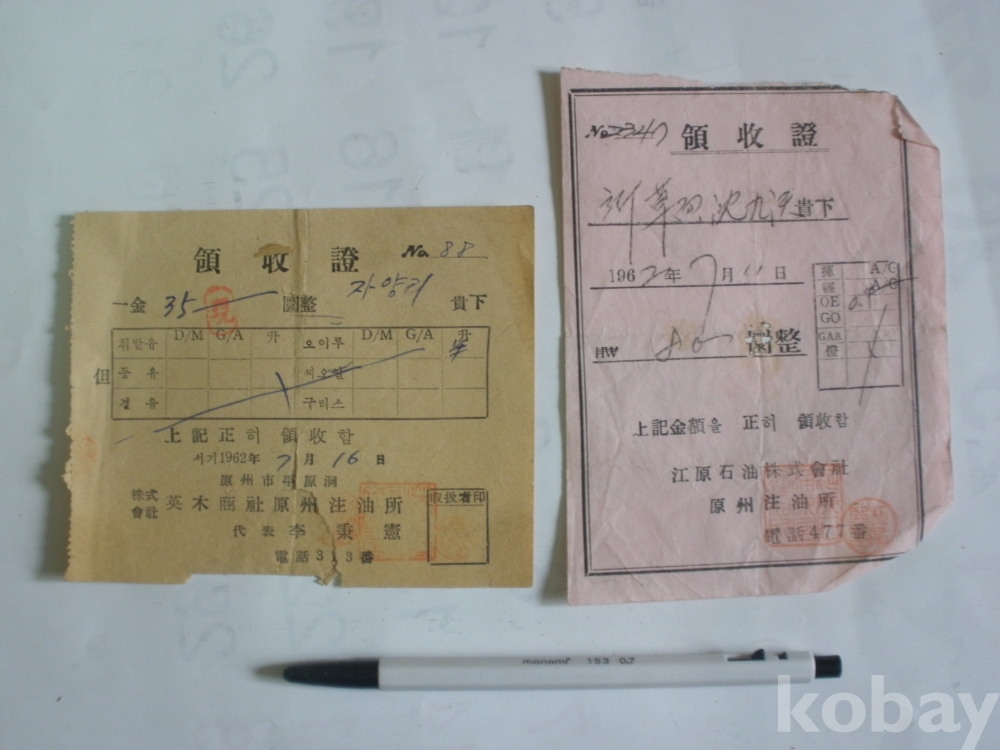 領收證 No. 88
一金 35 圜整 자양리 貴下
D/M G/A 升 D/M G/A 升
휘발유 오이루
但 등유 씨오일
경유 구리스
上記正히 領收함
서기1962年 7月 16日
原州市平原洞
株式會社 英木商社原州注油所 取扱者印
代表 李秉憲
電話313番
No 2347
領收證
沈九 貴下
1962年 7月 11日
揮 A/G
輕
OE
GO
GAA
燈
80 圜整
上記金額을 正히 領收함
江原石油株式會社
原州注油所
電話477番
monami 153 0.7
kobay